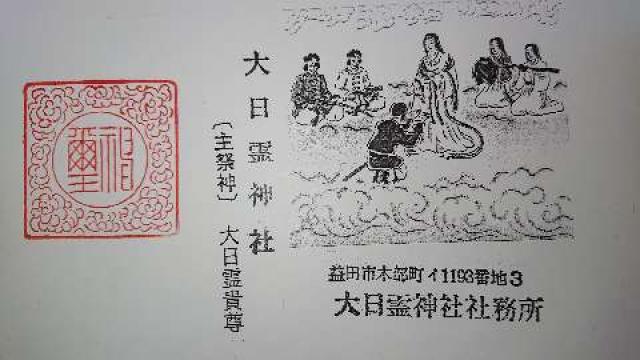 大日霊神社
〔主祭神〕 大日霊貴尊
益田市木部町イ1193番地3
大日霊神社社務所